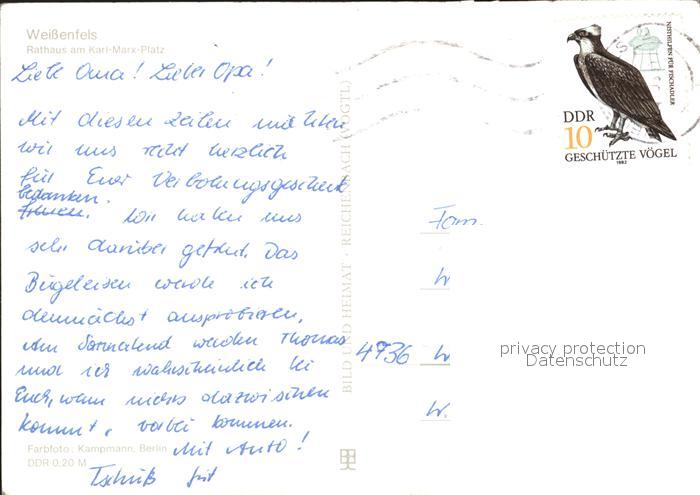 Weißenfels
Rathaus am Karl-Marx-Platz
Liebe Oma! Lieber Opa!
Mit diesen Zeilen möchten
wir uns recht herzlich
für Euer Verlobungsgeschenk
bedanken.
Wir haben uns
sehr darüber gefreut. Das
Bügeleisen werde ich
demnächst ausprobieren.
Am Sonnabend werden Thomas
und ich wahrscheinlich bei
Euch, wenn nichts dazwischen
kommt, vorbei kommen.
Mit Auto!
Farbfoto: Kampmann, Berlin
DDR 0,20 M
Tschüß
BILD UND HEIMAT · REICHENBACH (VOGTL)
NISTHILFEN FÜR FISCHADLER
DDR
10
GESCHÜTZTE VÖGEL
1982
Fam.
W.
4936 W
W.
privacy protection
Datenschutz